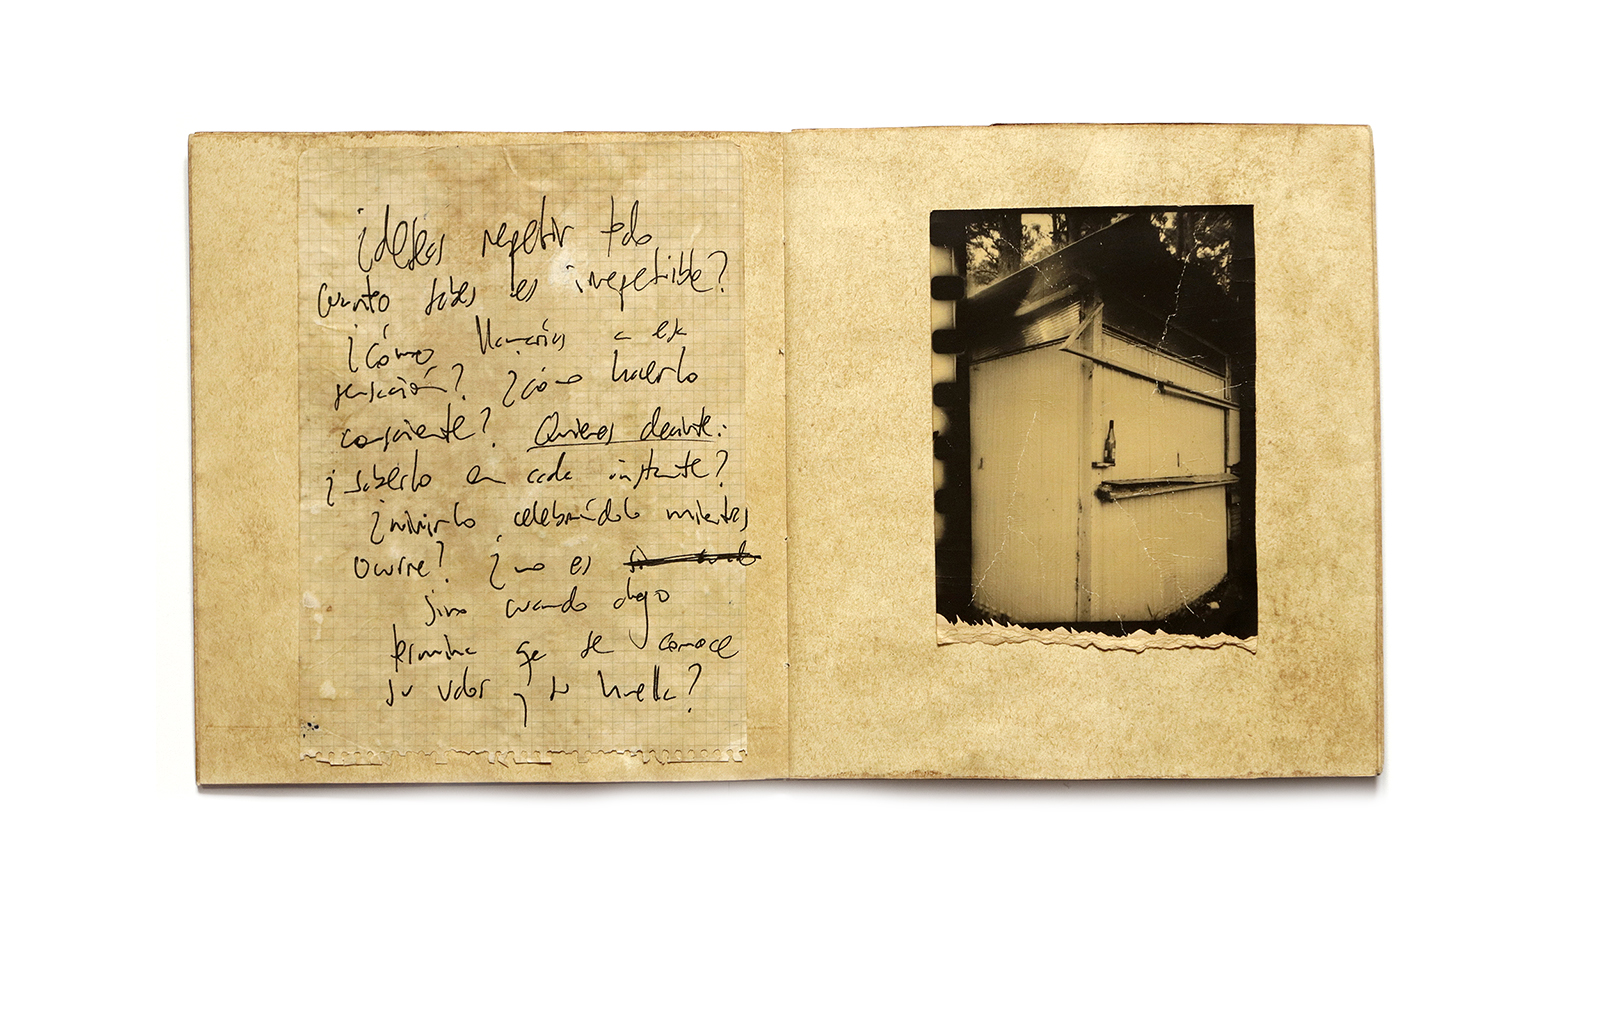 ¿deseas repetir todo
cuanto sabes es irrepetible?
¿cómo llamarías a esa
sensación? ¿cómo hacerlo
consciente? Quieres decirte:
¿saberlo en cada instante?
¿vivirlo celebrándolo mientras
ocurre? ¿no es
sino cuando algo
termina que se conoce
su valor y su huella?